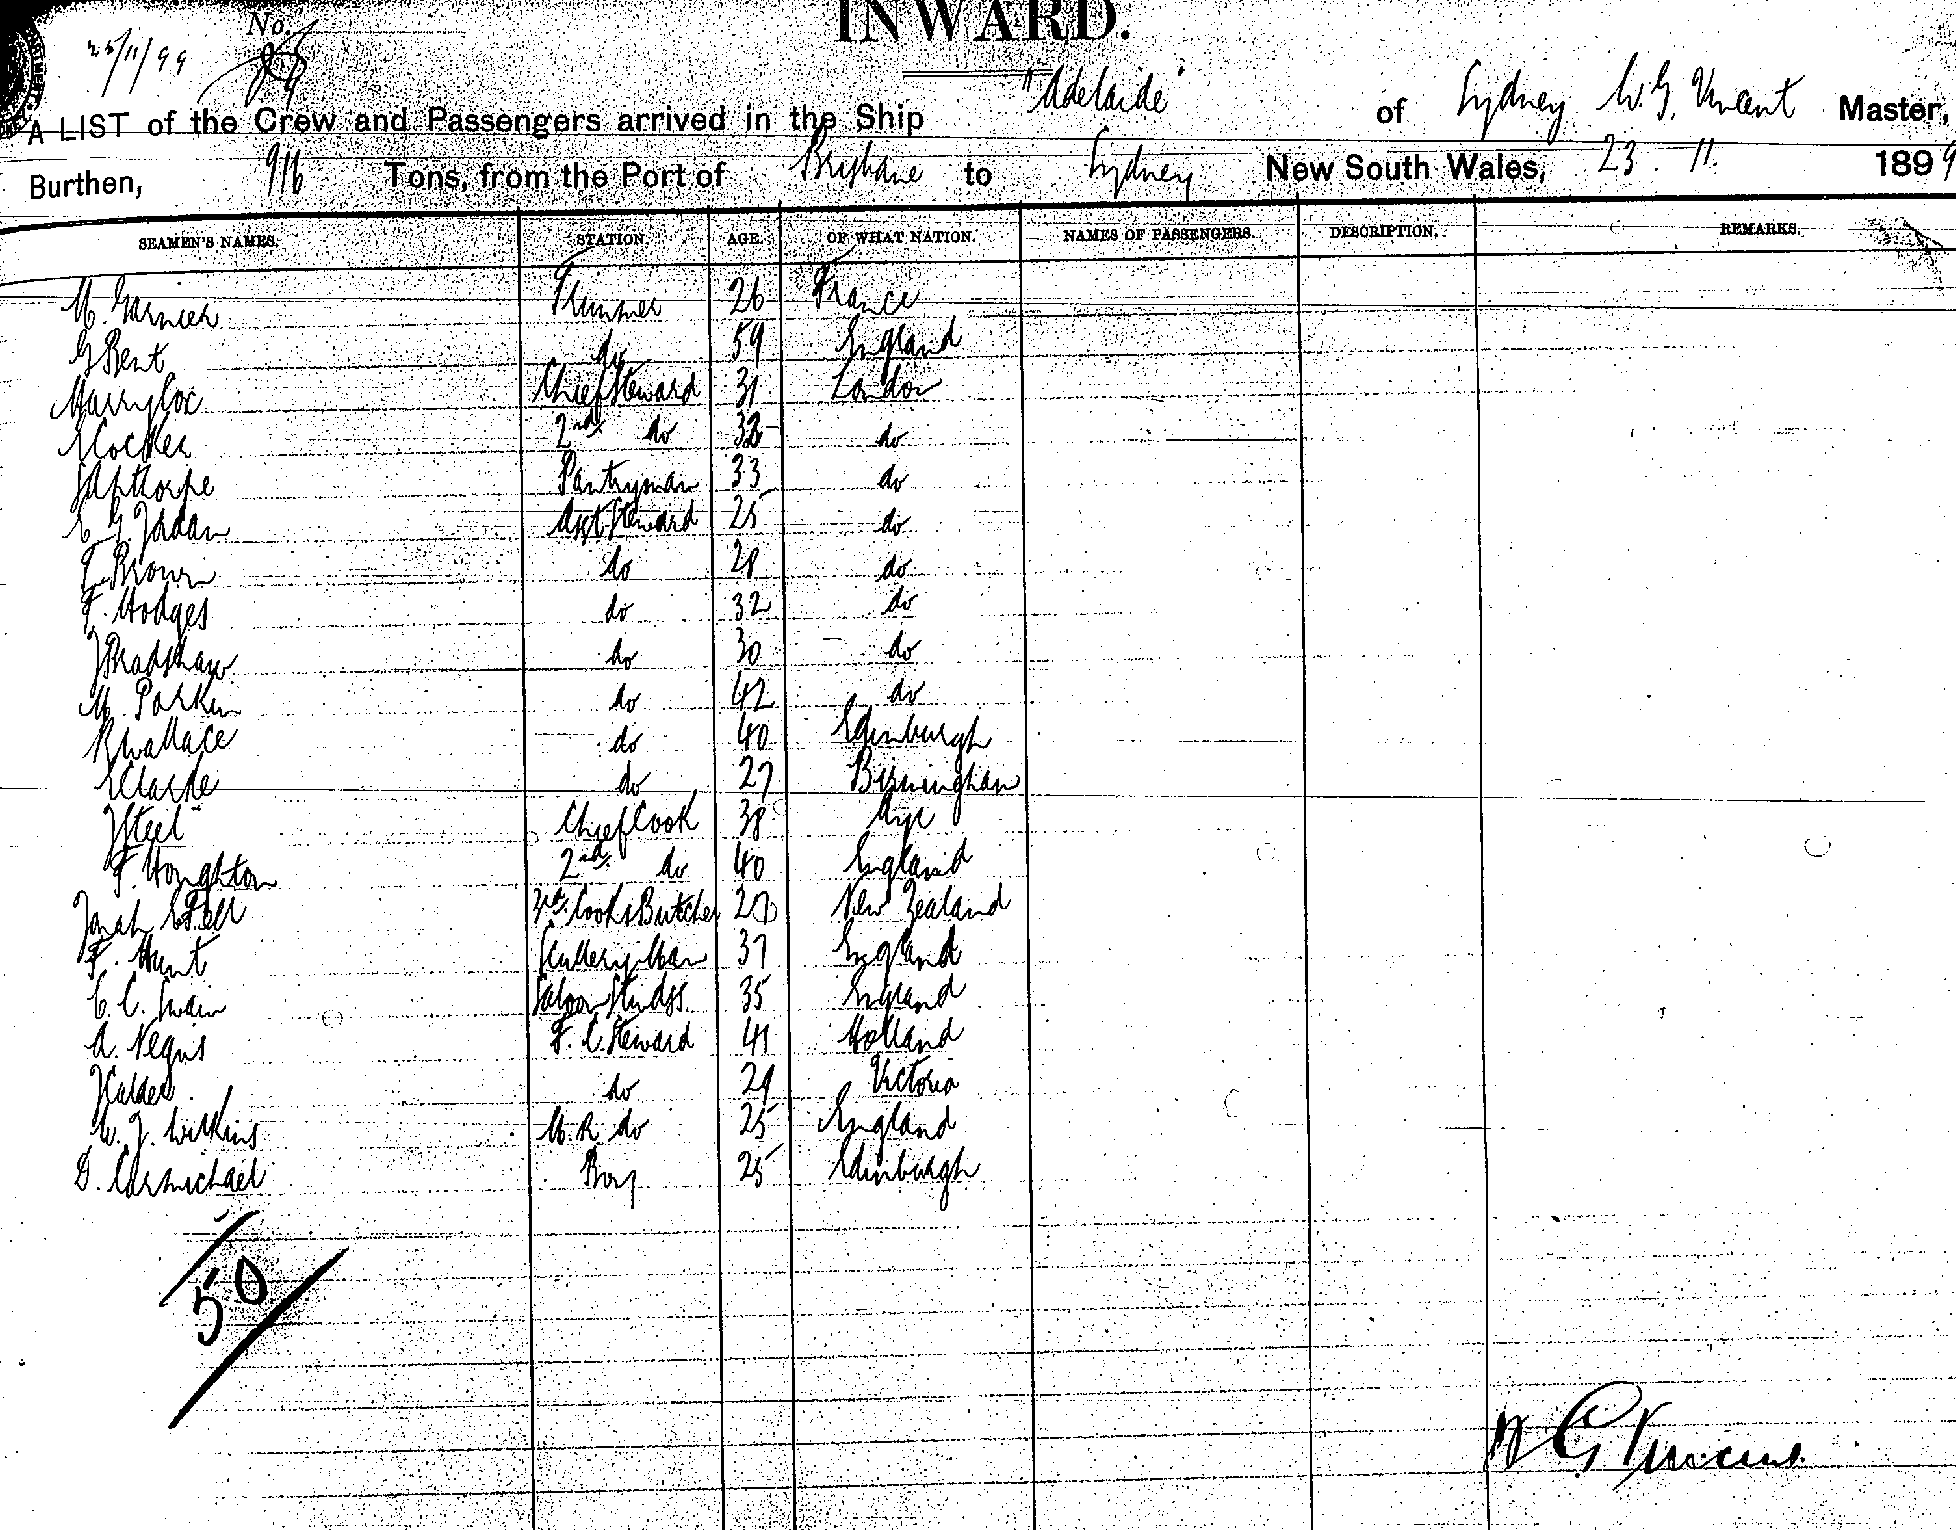 INWARD.
25/11/99 No.
A LIST of the Crew and Passengers arrived in the Ship "Adelaide" of Sydney W. G. Vincent Master,
Burthen, 916 Tons, from the Port of Brisbane to Sydney New South Wales, 23. 11. 1899
SEAMEN'S NAMES. STATION. AGE. OF WHAT NATION. NAMES OF PASSENGERS. DESCRIPTION. REMARKS.
M. Garnier Trimmer 26 France
G Bent do 59 England
Harry Cox Chief Steward 31 London
2nd do do
Apthorpe Pantryman 33 do
C. G. Jordan Asst Steward 25 do
T. Brown do 28 do
F. Hodges do 32 do
J Bradshaw do 30 do
M. Parker do 42 do
R Wallace do 40 Edinburgh
Clarke do 27 Birmingham
J Steel Chief Cook 38
F. Houghton 2nd do 40 England
Jonah 3rd Cook & Butcher New Zealand
F. Hunt Scullery Man 37 England
C. C. Swain Saloon Stwdss. 35 England
A. Negus F. C. Steward 41 Holland
J Calder do 29 Victoria
W. J. Wilkins M. R. do 25 England
D. Carmichael Boy 25 Edinburgh
50
W G Vincent